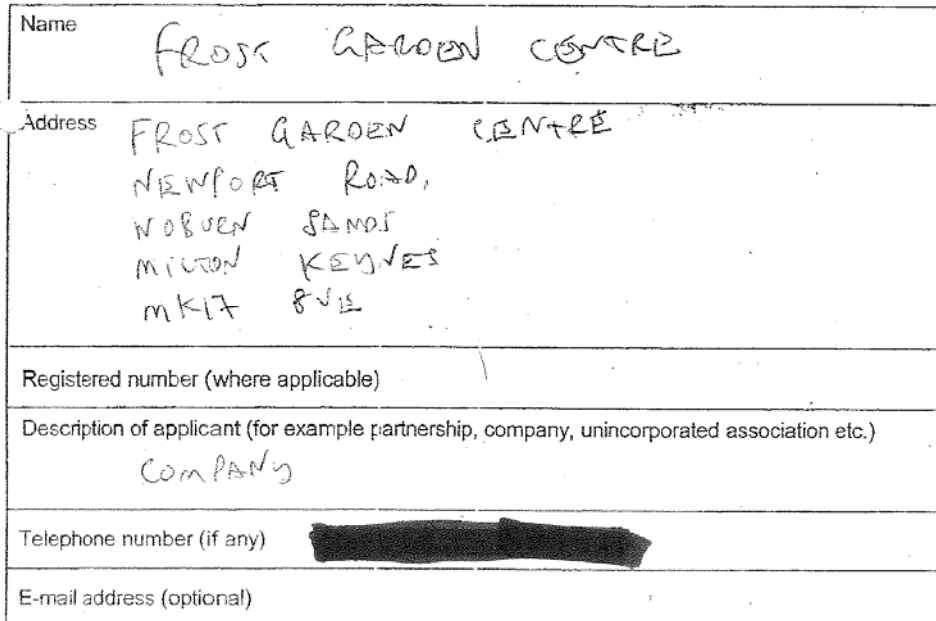 Name
FROST GARDEN CENTRE
Address
FROST GARDEN CENTRE
NEWPORT ROAD,
WOBURN SANDS
MILTON KEYNES
MK17 8VE
Registered number (where applicable)
Description of applicant (for example partnership, company, unincorporated association etc.)
COMPANY
Telephone number (if any)
E-mail address (optional)